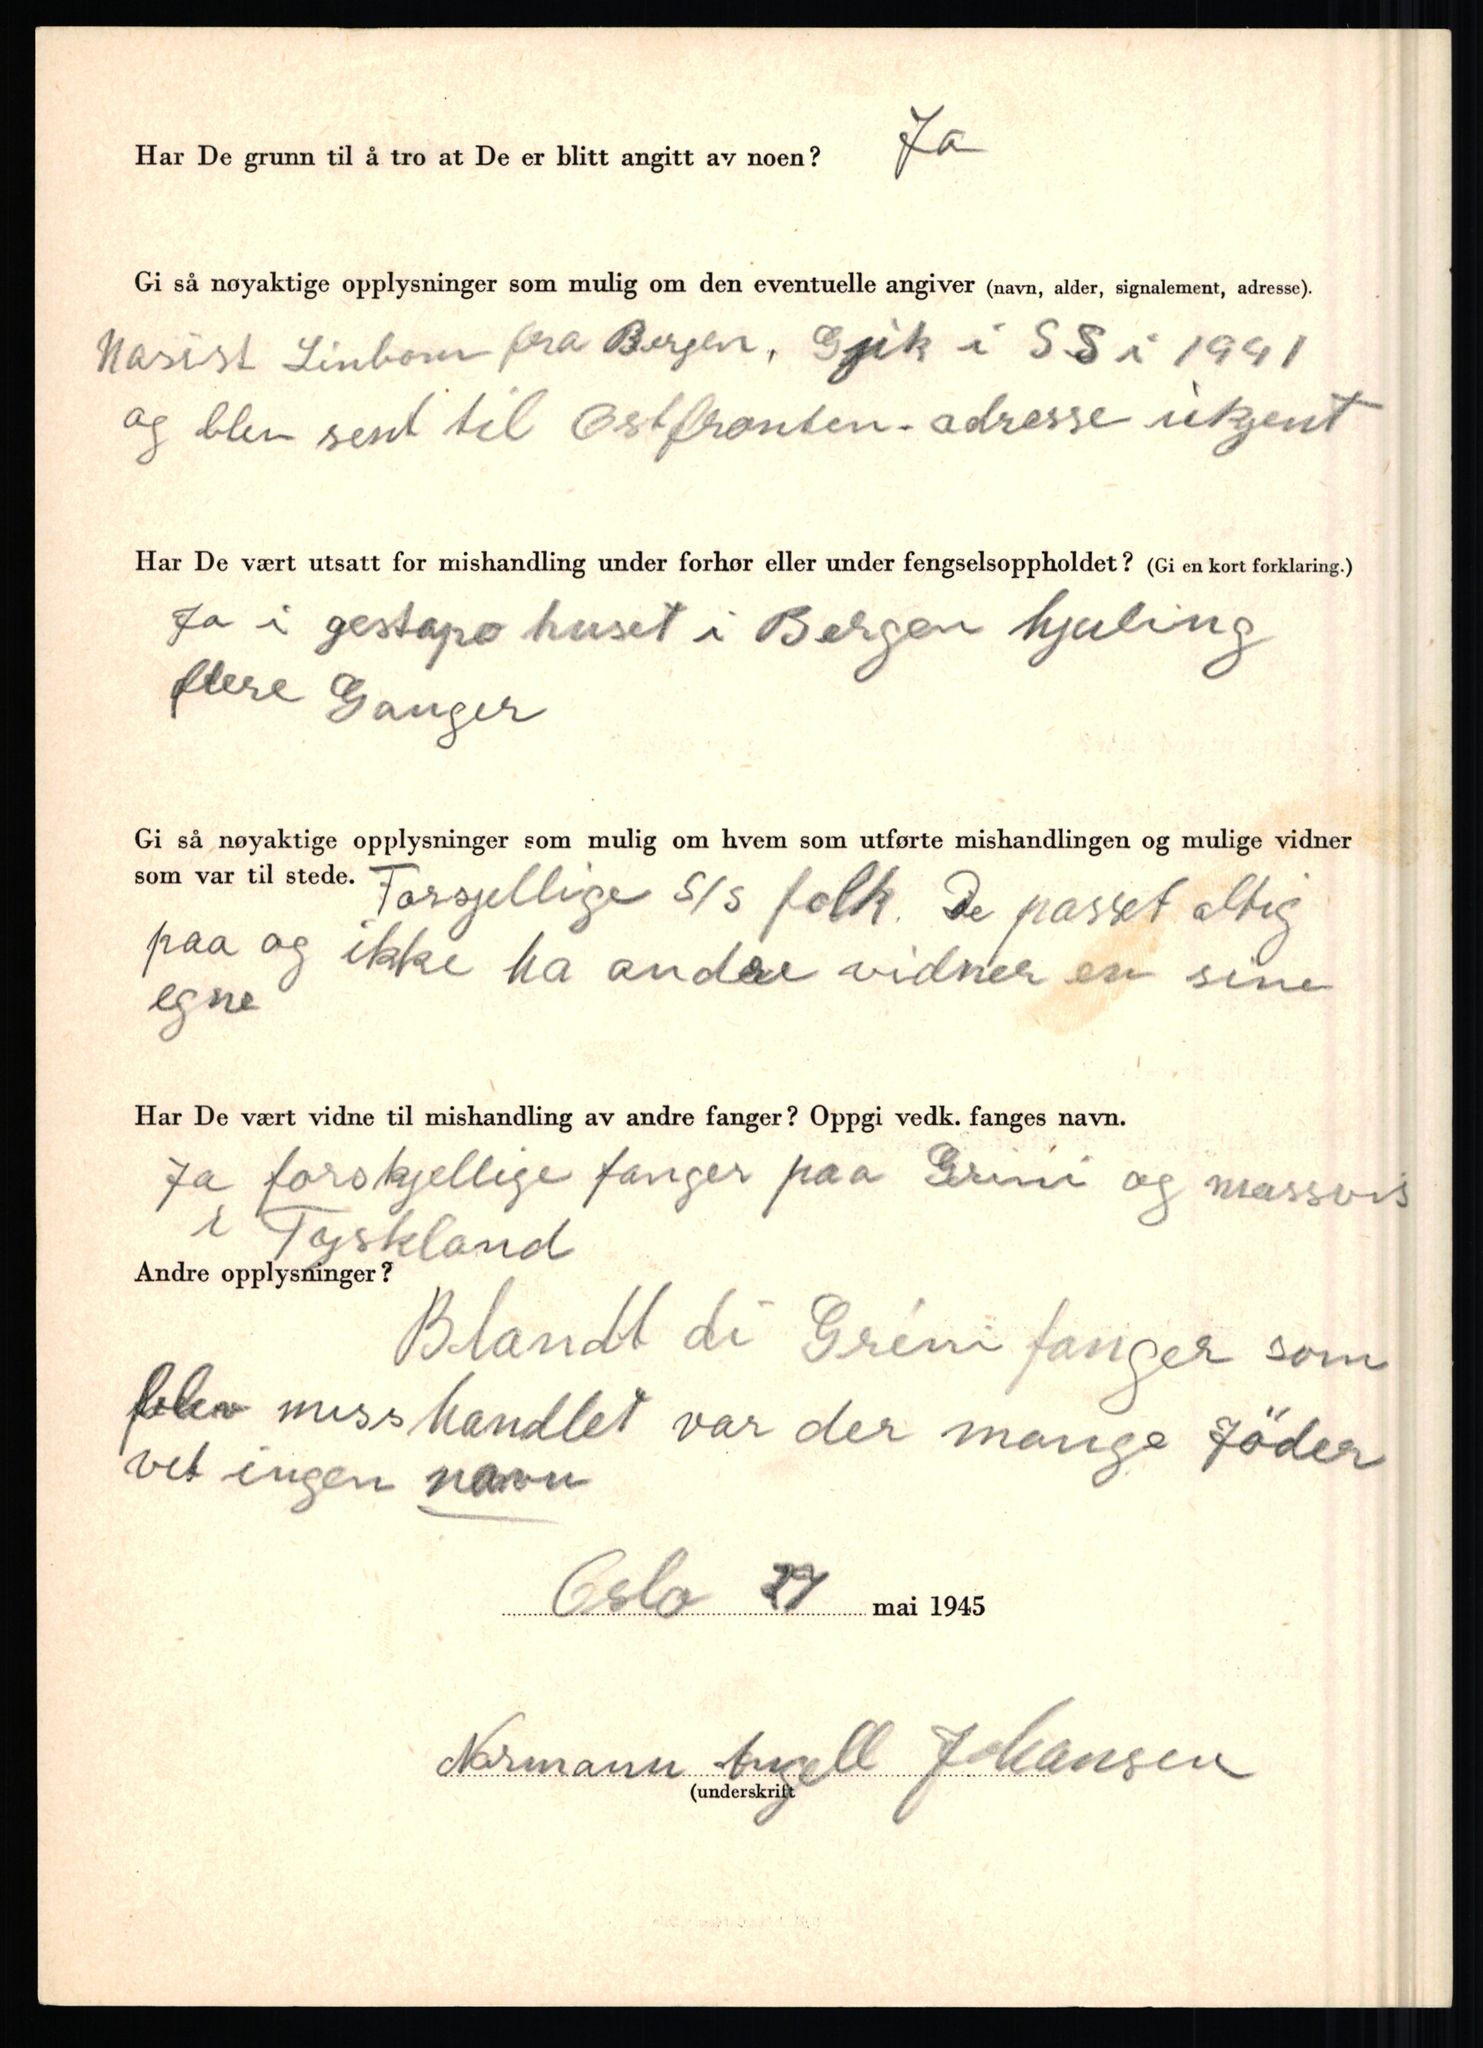 Har De grunn til å tro at De er blitt angitt av noen? Ja
Gi så nøyaktige opplysninger som mulig om den eventuelle angiver (navn, alder, signalement, adresse).
Nasist Linbom fra Bergen, Gik i SS i 1941
og blev sent til Ostfronten - adresse ukjent
Har De vært utsatt for mishandling under forhør eller under fengselsoppholdet? (Gi en kort forklaring.)
Ja i gestapo huset i Bergen hjuling
flere Ganger
Gi så nøyaktige opplysninger som mulig om hvem som utførte mishandlingen og mulige vidner
som var til stede. Forsjellige S/S folk. De passet altig
paa og ikke ha andre vidner en sine
egne
Har De vært vidne til mishandling av andre fanger? Oppgi vedk. fanges navn.
Ja forskjellige fanger paa Grini og massvis
i Tyskland
Andre opplysninger?
Blandt di Greni fanger som
blev misshandlet var der mange Jöder
vet ingen navn
Oslo 27 mai 1945
Normann Angell Johansen
(underskrift